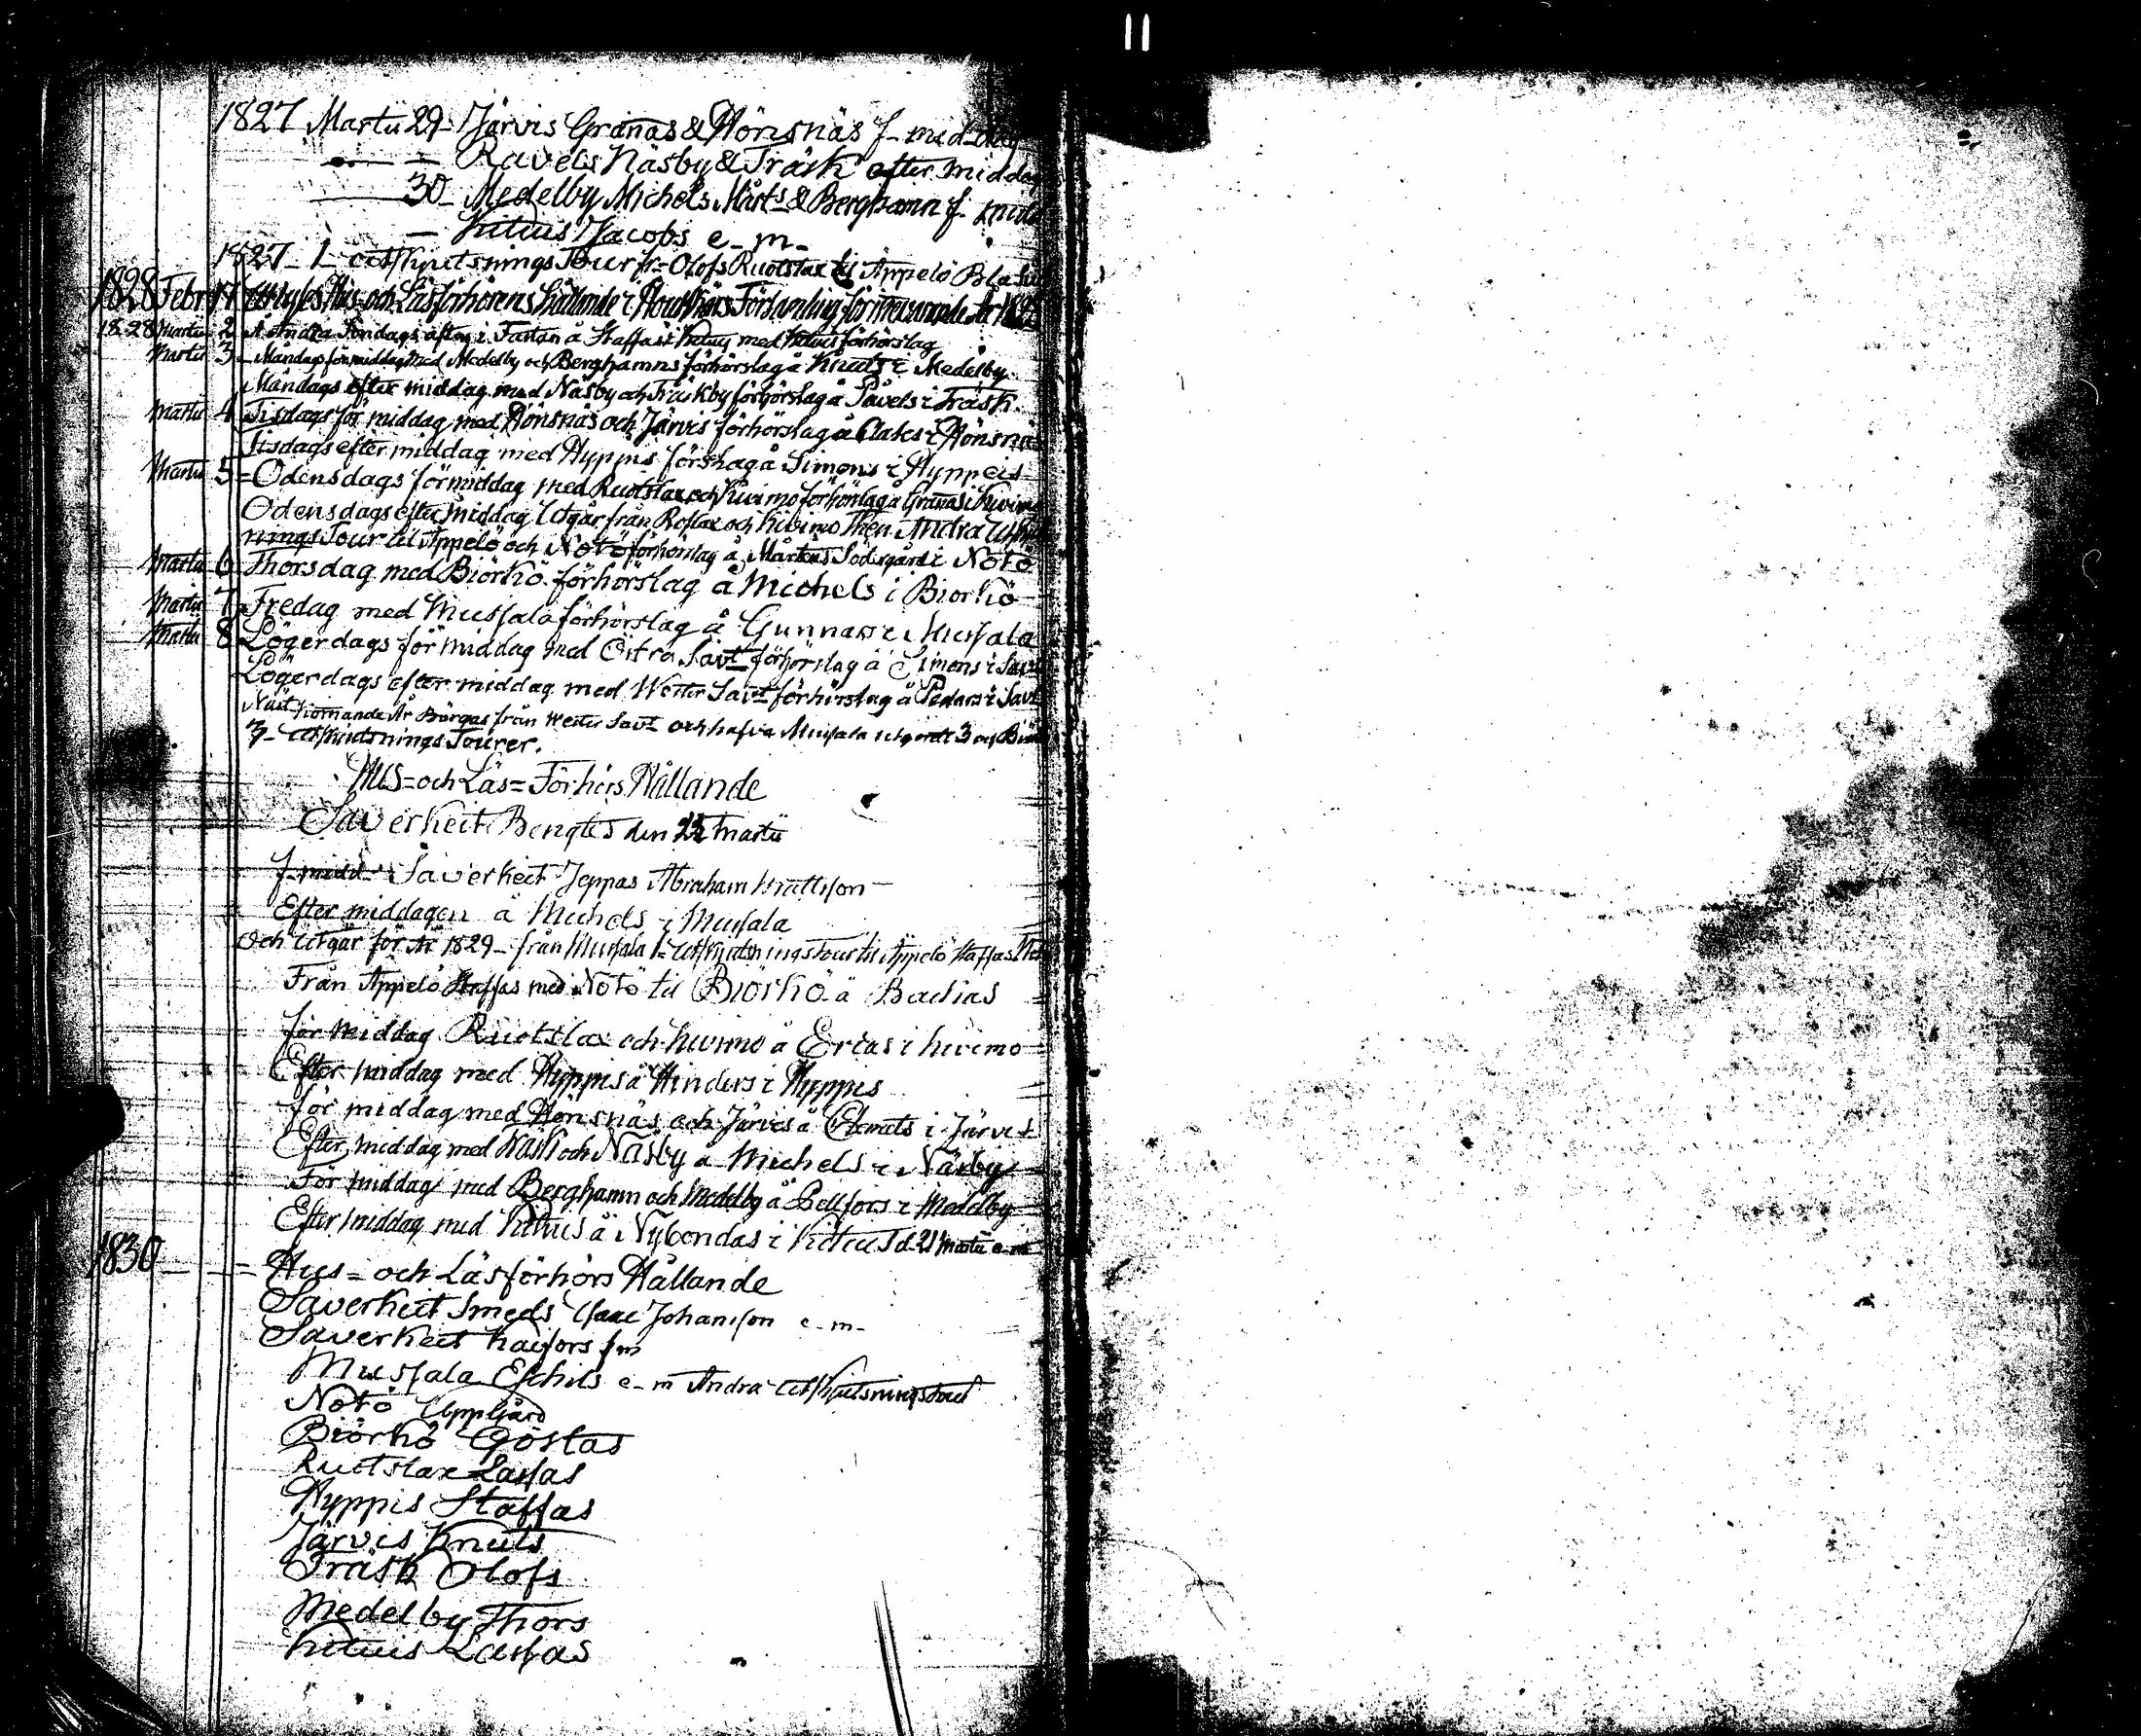 11
1827 Martii 29 - Järvis Granas & Hönsnäs f-mid-dag
— Ravels Näsby & Träsk efter middag
30 - Medelby Michels Mårts & Berghamn f-
— Kitius Jacobs e-m-
1827 - 1 - utskjutsnings Tour fr= Olofs Ruotslax til Appelö
1828 Febr 17 Förhörens hållande i Houtskärs Församling för
1828 Martii 2 Andra Söndags afton i Fastan å Staffas i Kitius med Kitius förhörslag
Martii 3 - Måndags förmiddag med Medelby och Berghamns förhörslag å Knuts i Medelby
Måndags efter middag med Näsby och Träskby förhörslag å Påvels i Träsk.
Martii 4 Tisdags för middag med Hönsnäs och Järvis förhörslag å Clates i Hönsnäs
Tisdags efter middag med Hyppis å Simons i Hyppeis
Martii 5 = Odensdags förmiddag med Ruotslax och Kivimo förhörslag å Granas i Kivimo
Odensdags efter middag Utgår från Roslax och Kivimo Then Andra
nings Tour til Appelö och Nötö förhörslag å Mårtens Södergård i Nötö
Martii 6 Thorsdag med Biörkö förhörslag å Michels i Biorkö
Martii 7 Fredag med Mussala förhörslag å Gunnars i Mussala
Martii 8 Lögerdags för middag med Östra Savt förhörslag å Simons i Savt
Lögerdags efter middag med Wester Savt förhörslag å Pedars i Savt
Näst kommande År Börjas från Wester Savt och hafva Mussala utgordt 3 och
3- utskjutsnings Tourer.
Hus= och Läs= Förhörs Hållande
Saverkeit Bengtes den 22 Martii
f-midd- Saverkeit Jeppas Abraham Mattsson
Efter middagen å Michels i Mussala
Och Utgår för År 1829 - från Mussala 1= utskjutsnings Tour til Appelö Staffas
Från Appelö Staffas med Nötö til Biörkö å Backas
för middag Ruotslax och Kivimo å Ericas i Kivimo
Efter middag med Hyppis å Hinders i Hyppis
för middag med Hönsnäs och Järvis å Clemets i Järvis
Efter middag med Träsk och Näsby å Michels i Näsby
För middag med Berghamn och Medelby å Bellfors i Medelby
Efter middag med Kitius å Nybondas i Kitius d. 21 Martii e-m
1830 — = Hus= och Läsförhörs Hållande
Saverkeit Smeds Isaac Johansson e-m-
Saverkeit Kaifors fm
Mussala Eschils e-m Andra utskjutsningstour
Nötö Uppgård
Biörkö Göstas
Ruotslax Lassas
Hyppis Staffas
Järvis Knuts
Träsk Olofs
Medelby Thors
Kitius Lassas